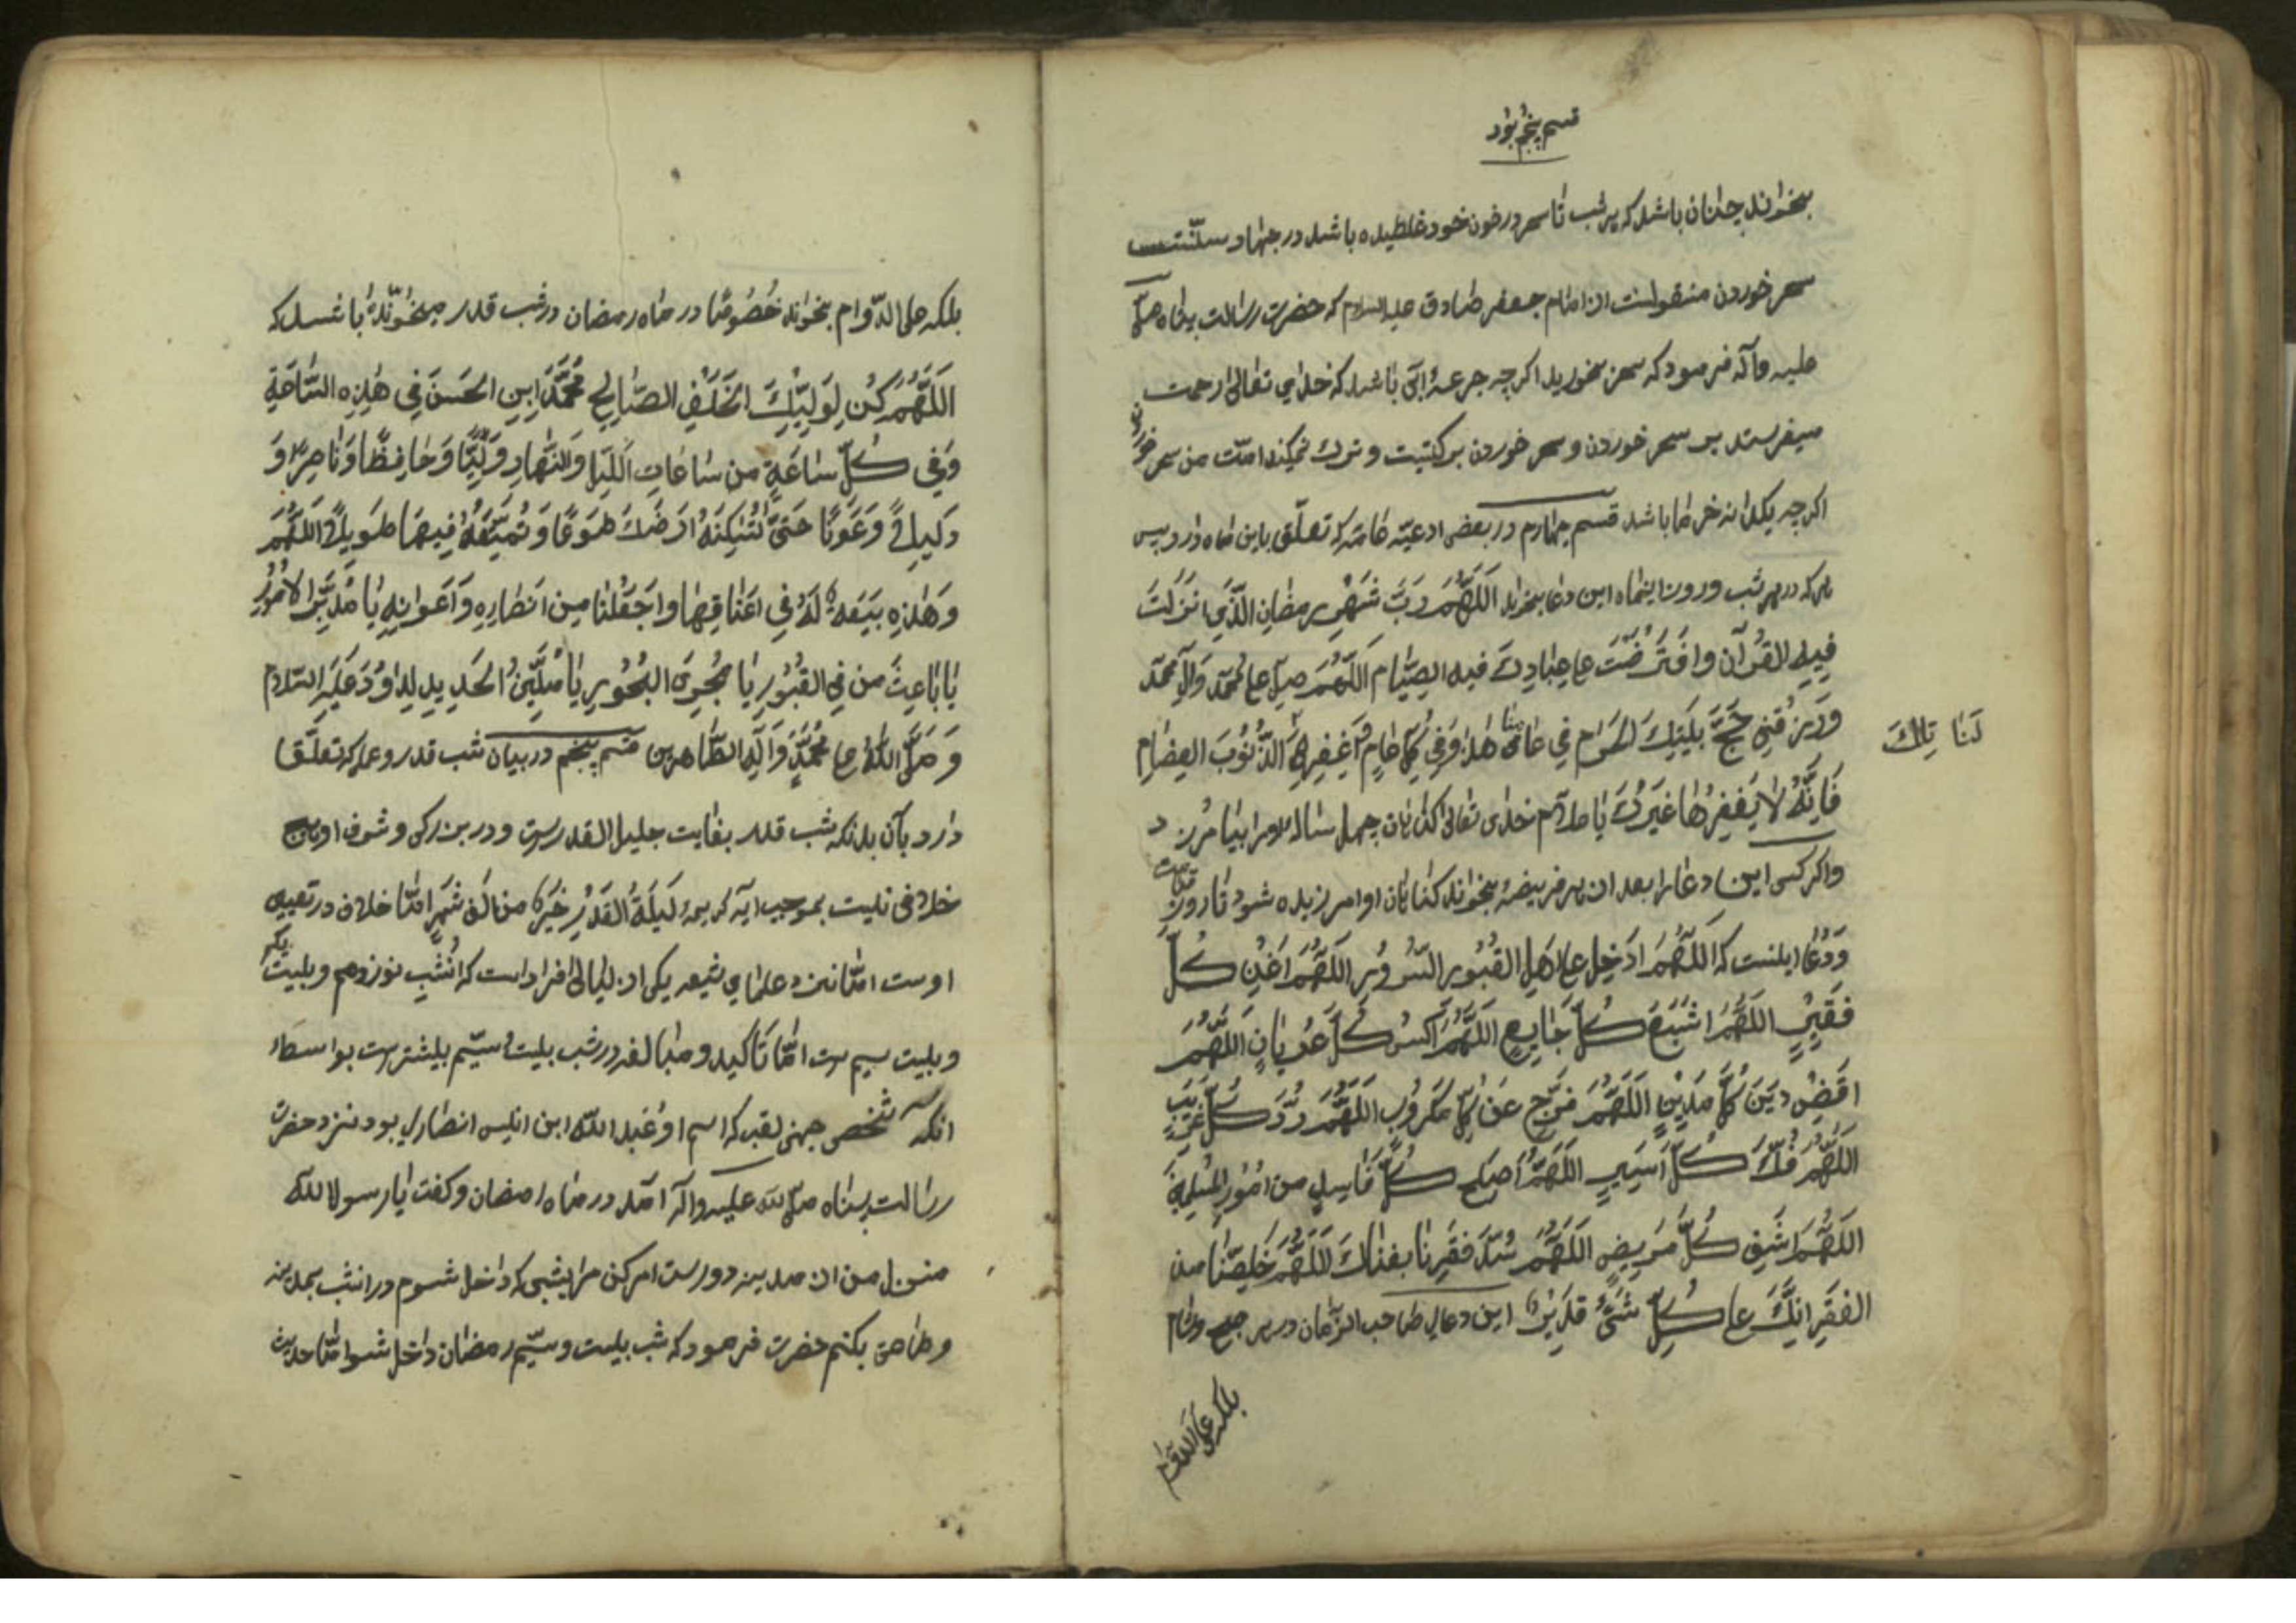 قسم پنجم بود
بخواند چنان باشد که هر شب تا سحر در خون خود غلطیده باشد در جهاد و سنّتست
سحر خوردن منقولست از امام جعفر صادق علیه السلام که حضرت رسالت پناه صلی
علیه وآله فرمود که سحر بخورید اکرچه جرعۀ آبی باشد که خدای تعالی رحمت
میفرستد بر سحر خوردن و سحر خوردن برکتیت و ترك نمیکند امّت من سحر خوردن
اکرچه یکدانه خرما باشد قسم چهارم در بعضی ادعیّه خاصّه که تعلّق باین ماه دارد پس
هر که در هر شب و روز اینماه این دعا بخواند اَللّٰهُمَّ رَبَّ شَهْرِ رمضان الَّذِي انزَلتَ
فِیهِ القُرآنَ وافتَرَضْتَ علی عِبَادِكَ فیه الصِّیٰام اَللّٰهُمَّ صلِّ علی مُحَمّد وَآلِ محمّد
وَارْزُقنِی حَجَّ بَیْتِكَ الحَرام فی عامنا هٰذا وَفِی کُلِّ عٰامٍ وَاغفِر لَنَا تِلكَ الذُّنُوبَ العِظَام
فَاِنَّهُ لا یَغفِرُهَا غَیرُكَ یٰا علّام خدای تعالی کناهان چهل ساله او را بیامرزد
واکر کسی این دعا را بعد از هر فریضۀ بخواند کناهان او آمرزیده شود تا روز قیامت
وَدُعا اینست که اَللّٰهُمَّ اَدْخِل علی اهلِ القُبُورِ السُّرُورَ اللّٰهُمَّ اَغنِ کُلَّ
فَقِیرٍ اللّٰهُمَّ اَشبِع کُلَّ جَایِعٍ اللّٰهُمَّ اکْسُ کُلَّ عُریَانٍ اَللّٰهُمَّ
اقضِ دَینَ کُلِّ مَدینٍ اَللّٰهُمَّ فَرِّج عَن کُلِّ مَکرُوبٍ اللّٰهُمَّ رُدَّ کُلَّ غَرِیبٍ
اللّٰهُمَّ فُكَّ کُلَّ اَسِیرٍ اللّٰهُمَّ اَصلِح کُلَّ فَاسِدٍ من اُمُورِ المُسلِمِینَ
اللّٰهُمَّ اشفِ کُلَّ مَرِیضٍ اللّٰهُمَّ سُدَّ فَقرَنا بغناكَ اللّٰهُمَّ خَلِّصنَا من
الفَقرِ اِنَّكَ علی کُلِّ شَیْءٍ قَدِیرٌ این دعای صاحب الزمان در هر صبح و شام
بلکه علی الدّوام
بلکه علی الدّوام بخواند خُصُوصًا در ماه رمضان در شب قدر میخوانده باشد که
اَللّٰهُمَّ کُن لِوَلِیِّكَ الخَلَفِ الصّٰالِحِ مُحَمَّدَ ابنِ الحَسَنَ فِی هٰذِهِ السَّاعَةِ
وَفِی کُلِّ سٰاعَةٍ مِن سٰاعٰاتِ اللَّیلِ وَالنَّهَارِ وَلِیًّا وَحَافِظًا وَنٰاصِرًا وَ
دَلِیلًا وَعَونًا حَتّی تُسکِنَهُ اَرضَكَ طَوعًا وَتُمَتِّعَهُ فِیهَا طَوِیلًا اَللّٰهُمَّ
وَهٰذِهِ بَیعَةٌ لَهُ فِی اَعنٰاقِهٰا واجعَلنا مِن اَنصٰارِهِ وَاَعوانِهِ یٰا مُدَبِّرَ الاُمُورِ
یٰا بٰاعِثَ مَن فِی القُبُورِ یٰا مُجرِیَ البُحُورِ یٰا مُلَیِّنَ الحَدِیدِ لِداوُدَ عَلَیهِ السَّلام
وَصَلَّی اللّٰهُ علی مُحَمَّدٍ وَآلِهِ الطّاهرین قسم پنجم در بیان شب قدر و عملی که تعلّق
دارد بآن بدانکه شب قدر بغایت جلیل القدرست و در بزرکی و شرف او هیچ
خلافی نیست بموجب آیه کریمه لَیلَةُ القَدْرِ خَیرٌ من اَلفِ شَهرٍ امّا خلاف در تعیین
اوست امّا نزد علمای شیعه یکی از لیالی افراد است که آنشب نوزدهم و بیست یکم
و بیست سیم ست امّا تاکید و مبالغه در شب بیست سیّم بیشترست بواسطۀ
انکه شخصی جهنی لقب که اسم او عَبد الله ابن انیس انصاری بود نزد حضرت
رسالت پناه صلی الله علیه وآله آمد در ماه رمضان و کفت یا رسول الله
منزل من از مدینه دورست امر کن مرا بشبی که داخل شوم در انشب بمدینه
و حضرت فرمود که شب بیست و سیّم رمضان داخل شو امّا حدیث